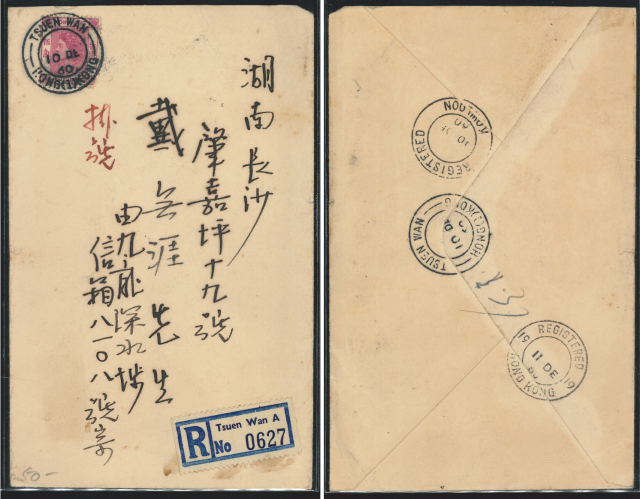 TSUEN WAN
10 DE
60
HONG KONG
湖南長沙
肇嘉坪十九號
戴無涯先生
由九龍深水埗
信箱八一〇八號寄
掛號
R
Tsuen Wan A
No 0627
50-
REGISTERED
10 DE
TSUEN WAN
10 DE
HONG KONG
REGISTERED
19
19
11 DE
60
HONG KONG